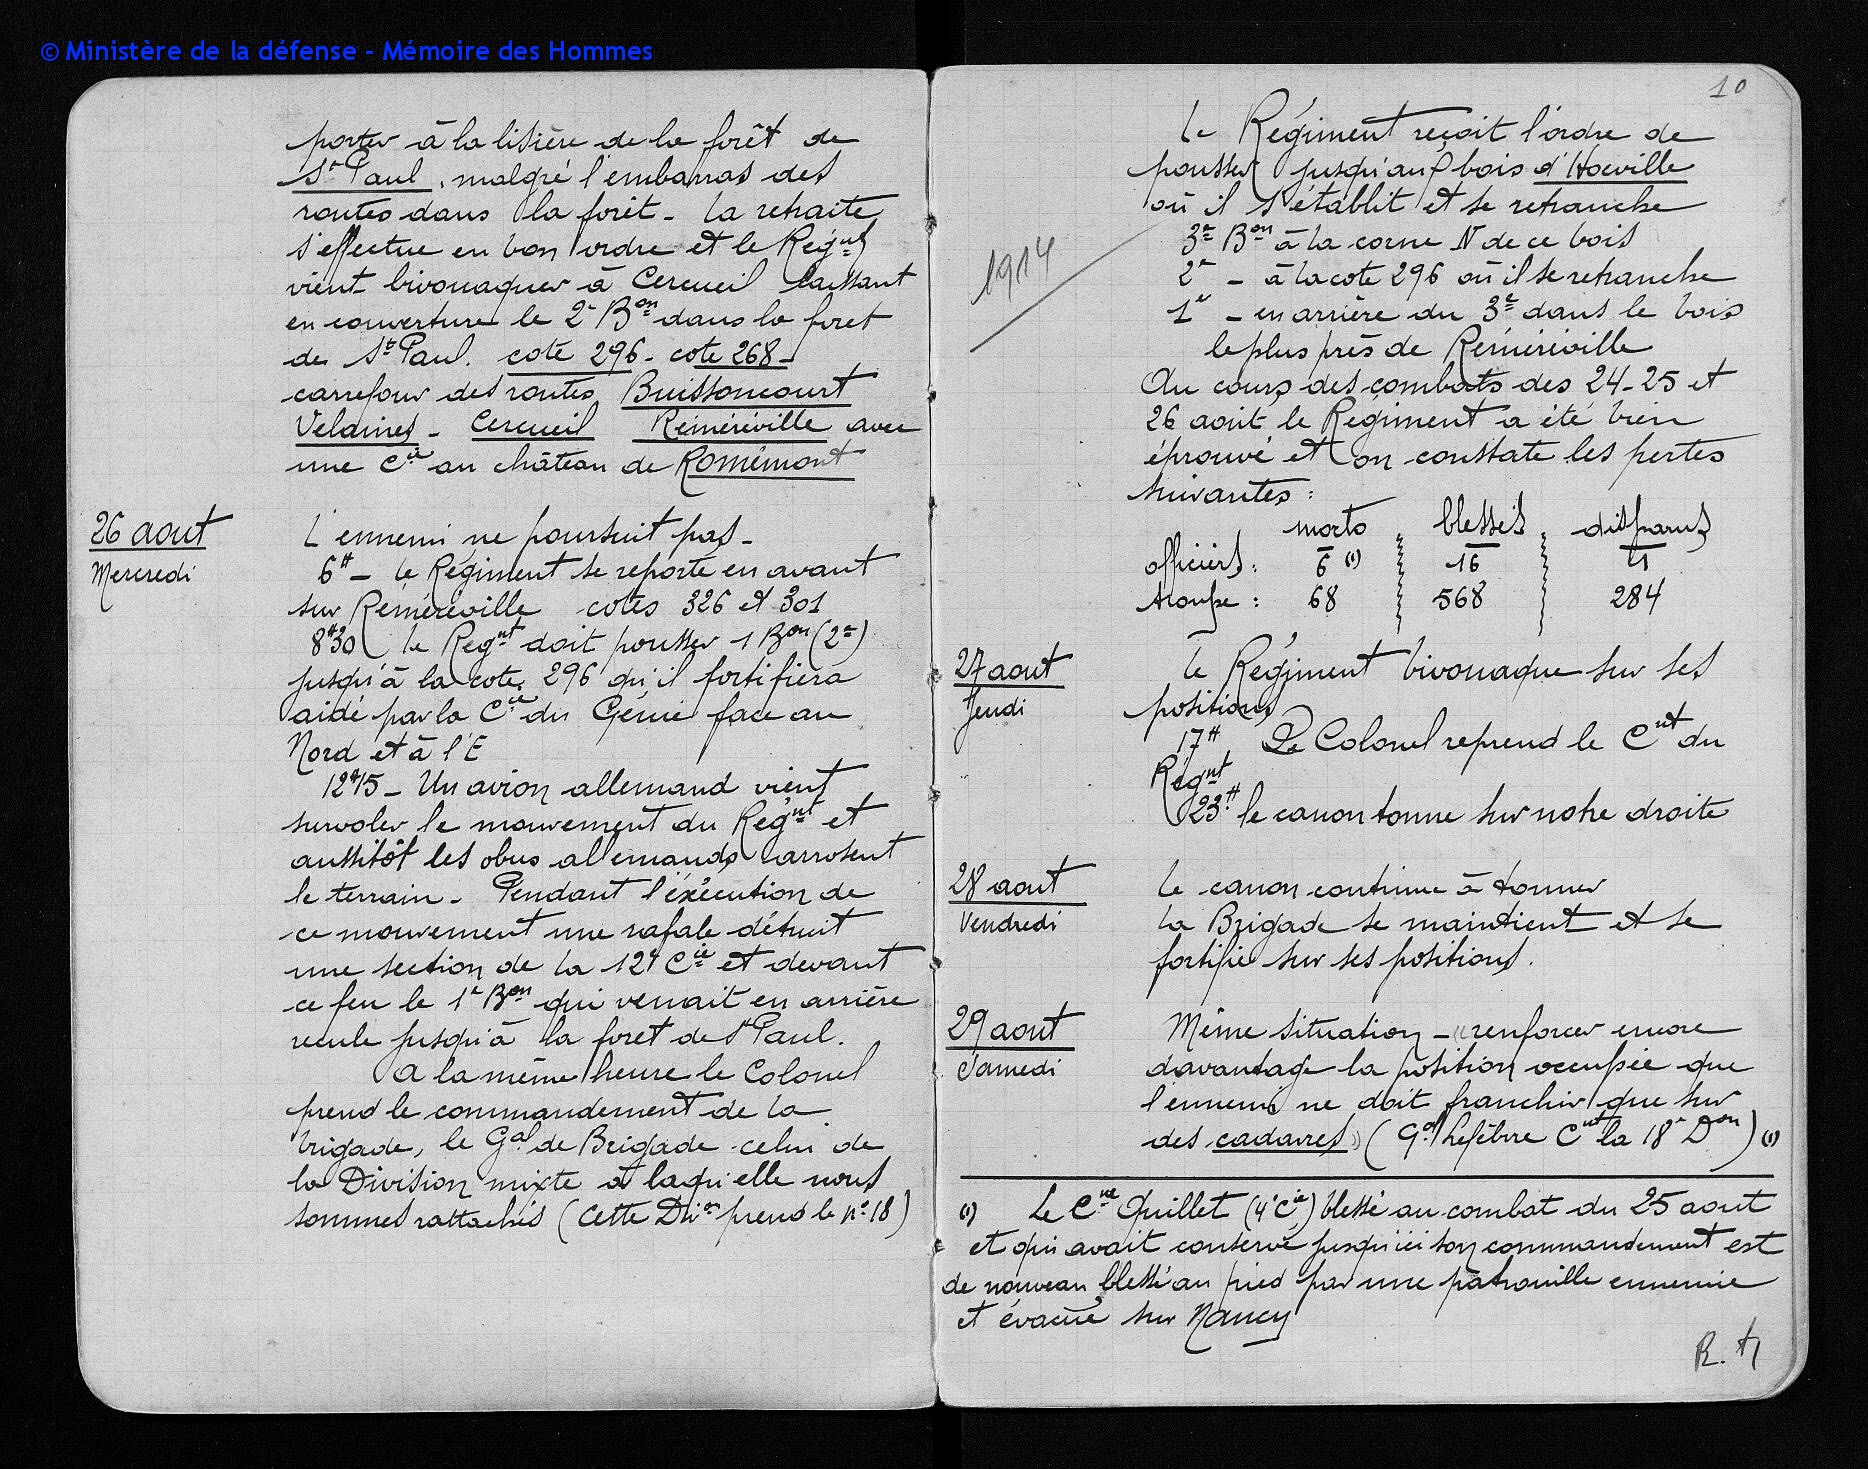 © Ministère de la défense - Mémoire des Hommes
porter à la lisière de la forêt de
St Paul, malgré l'embarras des
routes dans la forêt - La retraite
s'effectue en bon ordre et le Régnt
vient bivouaquer à Cerceuil laissant
en couverture le 2e Bon dans la foret
de St Paul. cote 296 - cote 268 -
carrefour des routes Buissoncourt
Velaines - Cerceuil Réméréville avec
une Cie au château de Romémont
26 aout
Mercredi
L'ennemi ne poursuit pas -
6H - Le Régiment se reporte en avant
sur Réméréville cotes 326 et 301
8H30 le Regnt doit pousser 1 Bon (2e)
jusqu'à la cote 296 qu'il fortifiera
aidé par la Cie du Génie face au
Nord et à l'E
12H15 - Un avion allemand vient
survoler le mouvement du Régnt et
aussitôt les obus allemands arrosent
le terrain - Pendant l'éxécution de
ce mouvement une rafale détruit
une section de la 12e Cie et devant
ce feu le 1e Bon qui venait en arrière
recule jusqu'à la foret de St Paul.
A la même heure le Colonel
prend le commandement de la
brigade, le Gal de Brigade celui de
la Division mixte à laquelle nous
sommes rattachés (cette Don prend le no 18)
10
1914
Le Régiment reçoit l'ordre de
pousser jusqu'au bois d'Hoeville
où il s'établit et se retranche
3e Bon à la corne N de ce bois
2e - à la cote 296 où il se retranche
1e - en arrière du 3e dans le bois
le plus près de Réméréville
Au cours des combats des 24-25 et
26 août le Régiment a été bien
éprouvé et on constate les pertes
suivantes :
morts blessés disparus
officiers : 6 (1) 16 4
troupe : 68 568 284
27 aout
Jeudi
Le Régiment bivouaque sur ses
positions
17H Le Colonel reprend le Cnt du
Régnt
23H le canon tonne sur notre droite
28 aout
Vendredi
Le canon continue à tonner
La Brigade se maintient et se
fortifie sur ses positions.
29 aout
Samedi
Même situation - "renforcer encore
davantage la position occupée que
l'ennemi ne doit franchir que sur
des cadavres" (Gal Lefèbvre Cnt la 18e Don) (1)
(1) Le Cne Quillet (4e Cie) blessé au combat du 25 aout
et qui avait conservé jusqu'ici son commandement est
de nouveau blessé au pied par une patrouille ennemie
et évacué sur Nancy